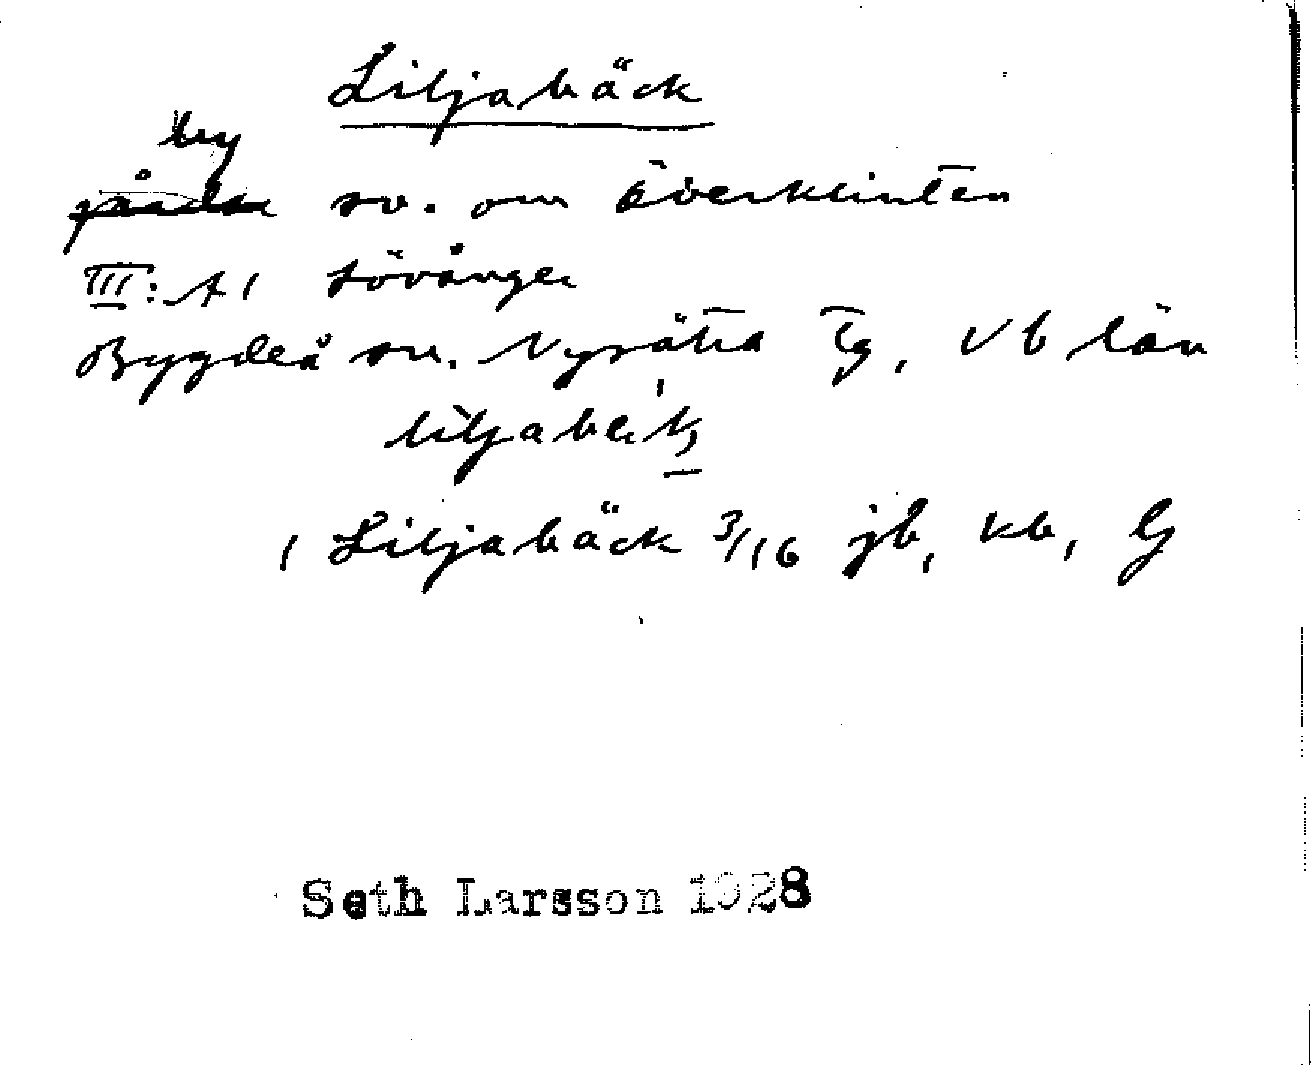 Liljabäck
by
gårdar sv. om Överklinten
III: A1 Lövånger
Bygdeå sn. Nysätra Tg, Vb län
1 Liljabäck 3/16 jb, kb, Lj
Seth Larsson 1928